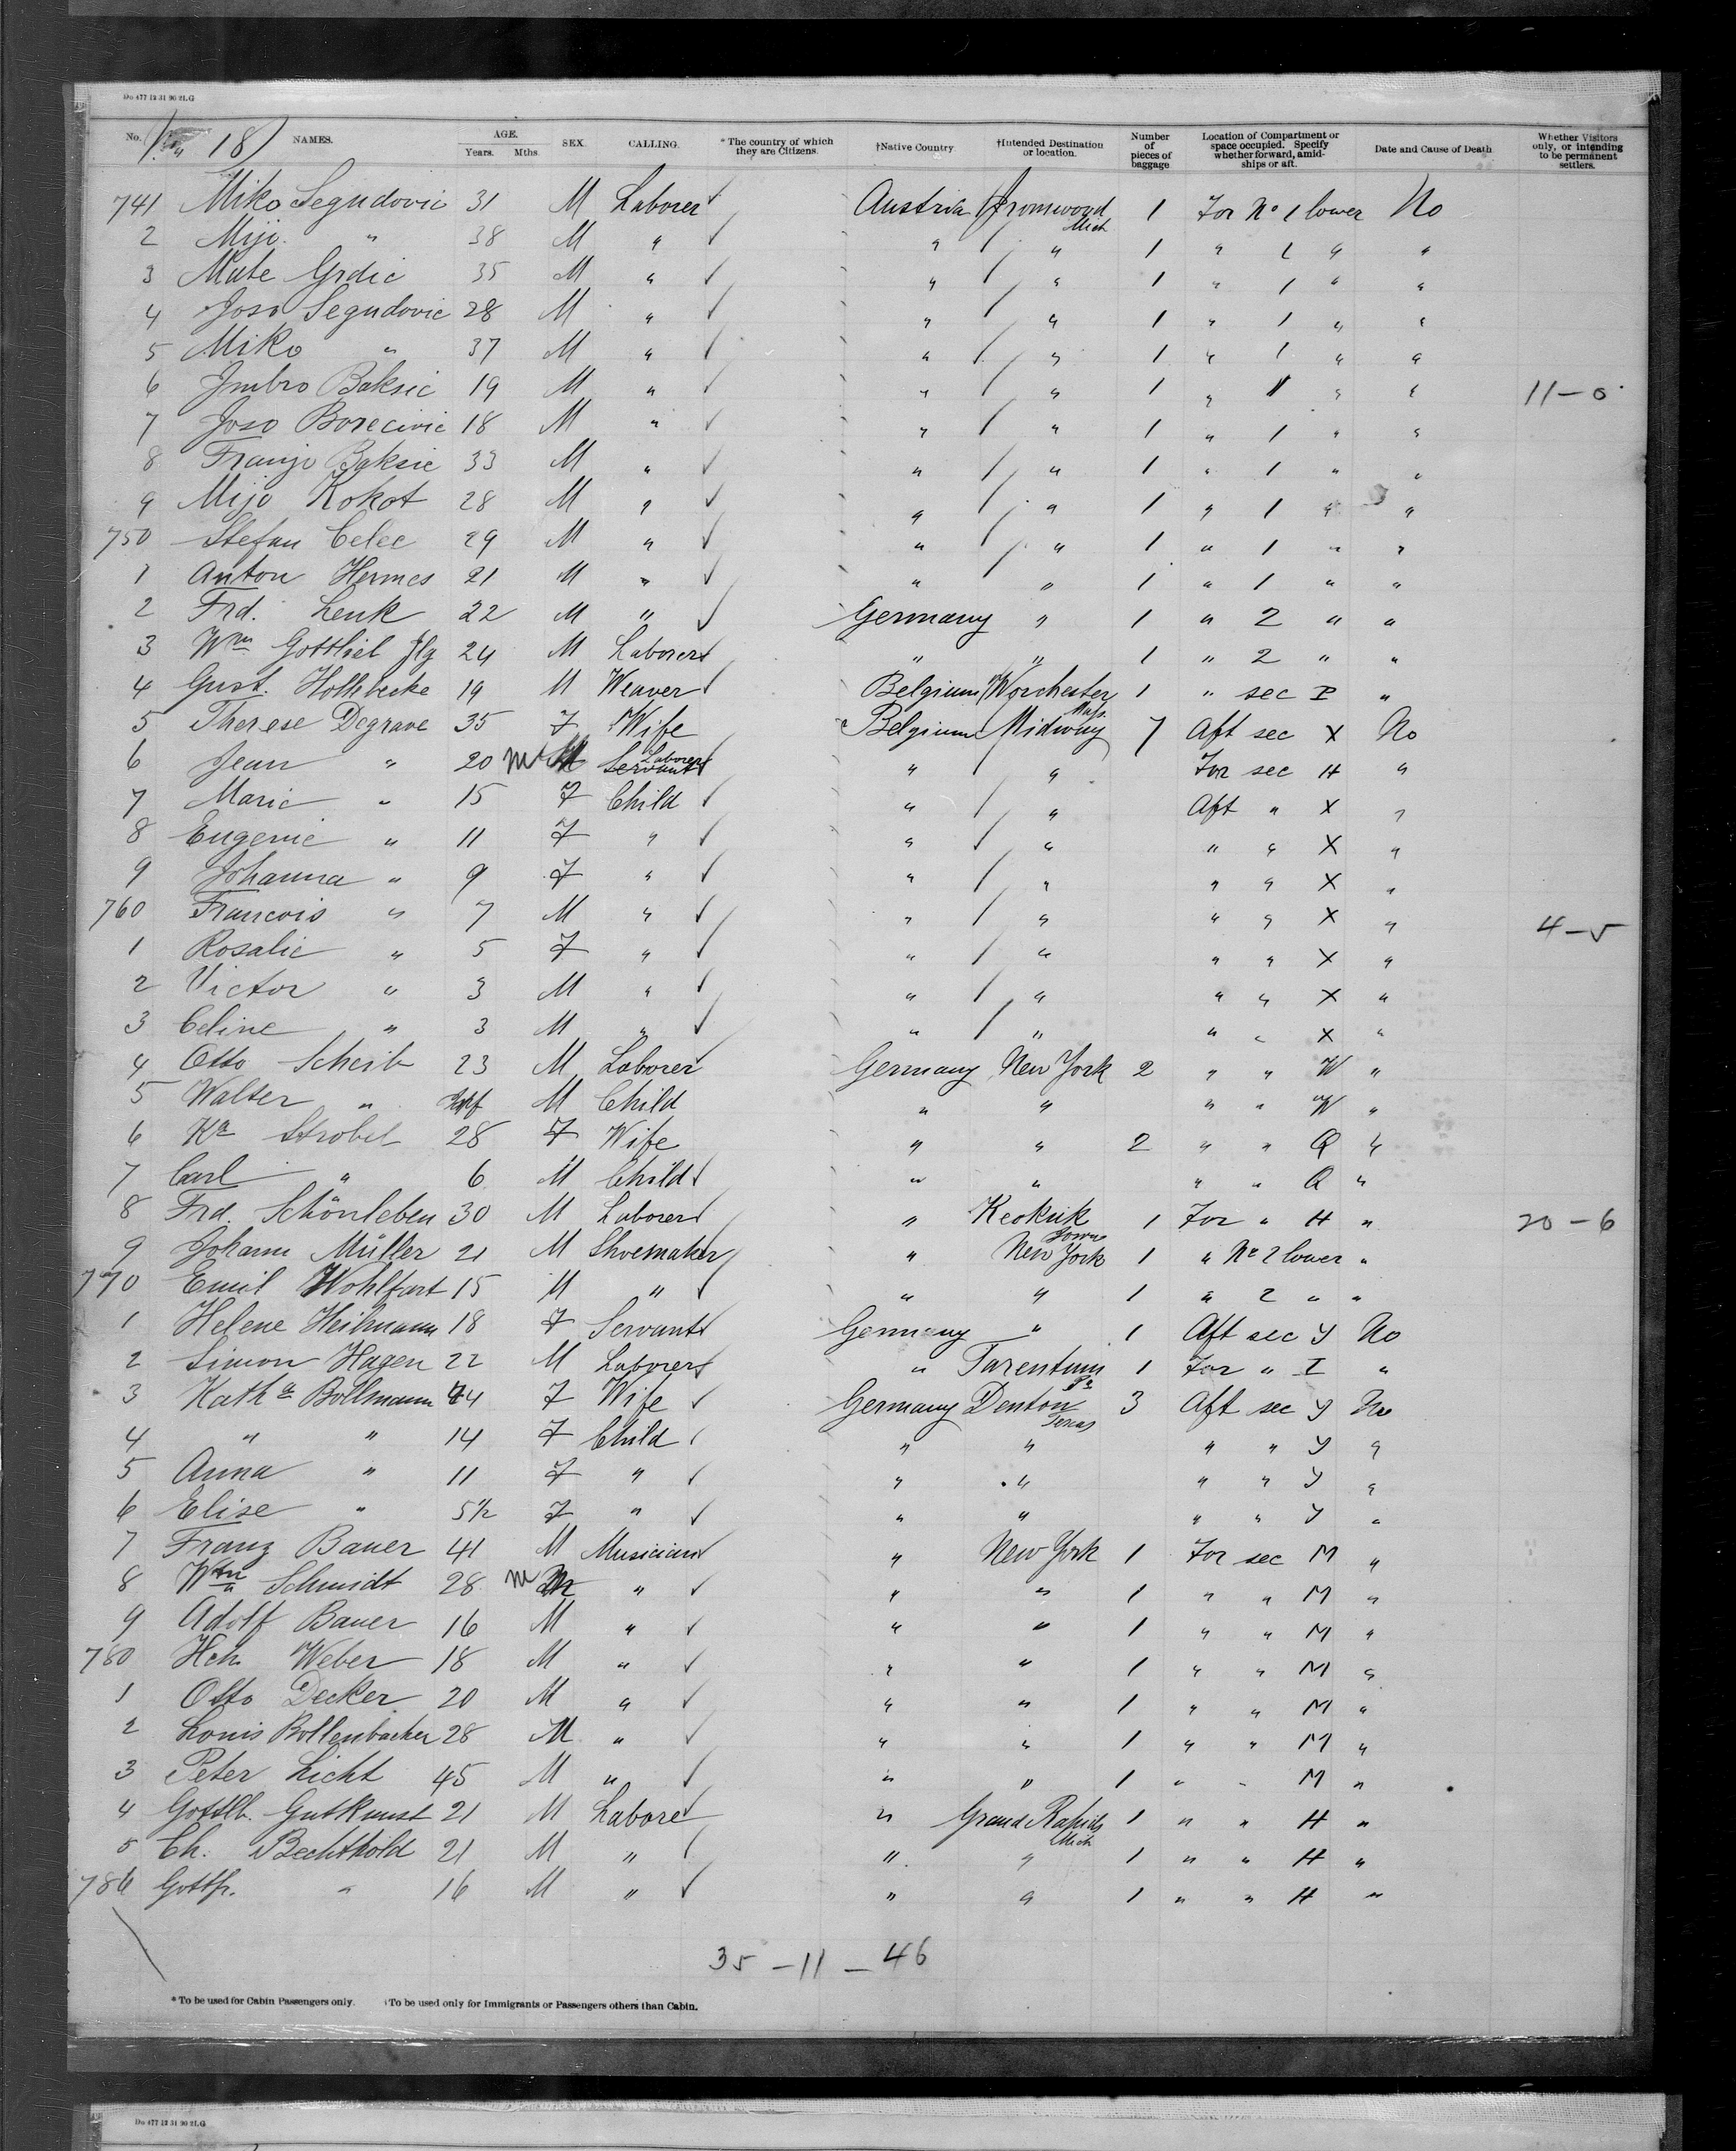 Do 477 12 31 90 2LG
No. NAMES. AGE. Years. Mths. SEX. CALLING. * The country of which they are Citizens. †Native Country. †Intended Destination or location. Number of pieces of baggage Location of Compartment or space occupied. Specify whether forward, amidships or aft. Date and Cause of Death Whether Visitors only, or intending to be permanent settlers.
18)
741 Miko Segudovic 31 M Laborer Austria Ironwood Mich 1 For No 1 lower No
2 Mijo " 38 M " " " 1 " 1 " "
3 Mate Grdic 35 M " " " 1 " 1 " "
4 Joso Segudovic 28 M " " " 1 " 1 " "
5 Miko " 37 M " " " 1 " 1 " "
6 Imbro Baksic 19 M " " " 1 " 1 " " 11-0
7 Joso Borecivic 18 M " " " 1 " 1 " "
8 Franjo Baksic 33 M " " " 1 " 1 " "
9 Mijo Kokot 28 M " " " 1 " 1 " "
750 Stefan Celec 29 M " " " 1 " 1 " "
1 Anton Hermes 21 M " " " 1 " 1 " "
2 Frd. Lenk 22 M " Germany " 1 " 2 " "
3 Wm Gottliel Jlg 24 M Laborer " " 1 " 2 " "
4 Gust. Hollebecke 19 M Weaver Belgium Worchester Mass. 1 " sec P "
5 Therese Degrave 35 F Wife Belgium Midway 7 Aft sec X No
6 Jean " 20 M Servant Laborer " " For sec H "
7 Marie " 15 F Child " " Aft " X "
8 Eugenie " 11 F " " " " " X "
9 Johanna " 9 F " " " " " X "
760 Francois " 7 M " " " " " X " 4-5
1 Rosalie " 5 F " " " " " X "
2 Victor " 3 M " " " " " X "
3 Celine " 3 M " " " " " X "
4 Otto Scheib 23 M Laborer Germany New York 2 " " W "
5 Walter " Inf M Child " " " " W "
6 Ka Strobel 28 F Wife " " 2 " " Q "
7 Carl " 6 M Child " " " " Q "
8 Frd. Schönleben 30 M Laborer " Keokuk Iowa 1 For " H " 20-6
9 Johann Müller 21 M Shoemaker " New York 1 " No 2 lower "
770 Emil Wohlfart 15 M " " " 1 " 2 " "
1 Helene Heihmann 18 F Servant Germany " 1 Aft sec Y No
2 Simon Hagen 22 M Laborer " Tarentum Pa 1 For " I "
3 Katha Bollmann 44 F Wife Germany Denton Texas 3 Aft sec Y No
4 " " 14 F Child " " " " Y "
5 Anna " 11 F " " " " " Y "
6 Elise " 5½ F " " " " " Y "
7 Franz Bauer 41 M Musician " New York 1 For sec M "
8 Wm Schmidt 28 M " " " 1 " " M "
9 Adolf Bauer 16 M " " " 1 " " M "
780 Hch Weber 18 M " " " 1 " " M "
1 Otto Decker 20 M " " " 1 " " M "
2 Louis Bollenbacher 28 M " " " 1 " " M "
3 Peter Licht 45 M " " " 1 " " M "
4 Gottlb. Gutkunst 21 M Labore " Grand Rapids Mich 1 " " H "
5 Ch. Bechthold 21 M " " " 1 " " H "
786 Gottfr. " 16 M " " " 1 " " H "
35 - 11 - 46
* To be used for Cabin Passengers only. †To be used only for Immigrants or Passengers others than Cabin.
Do 477 12 31 90 2LG